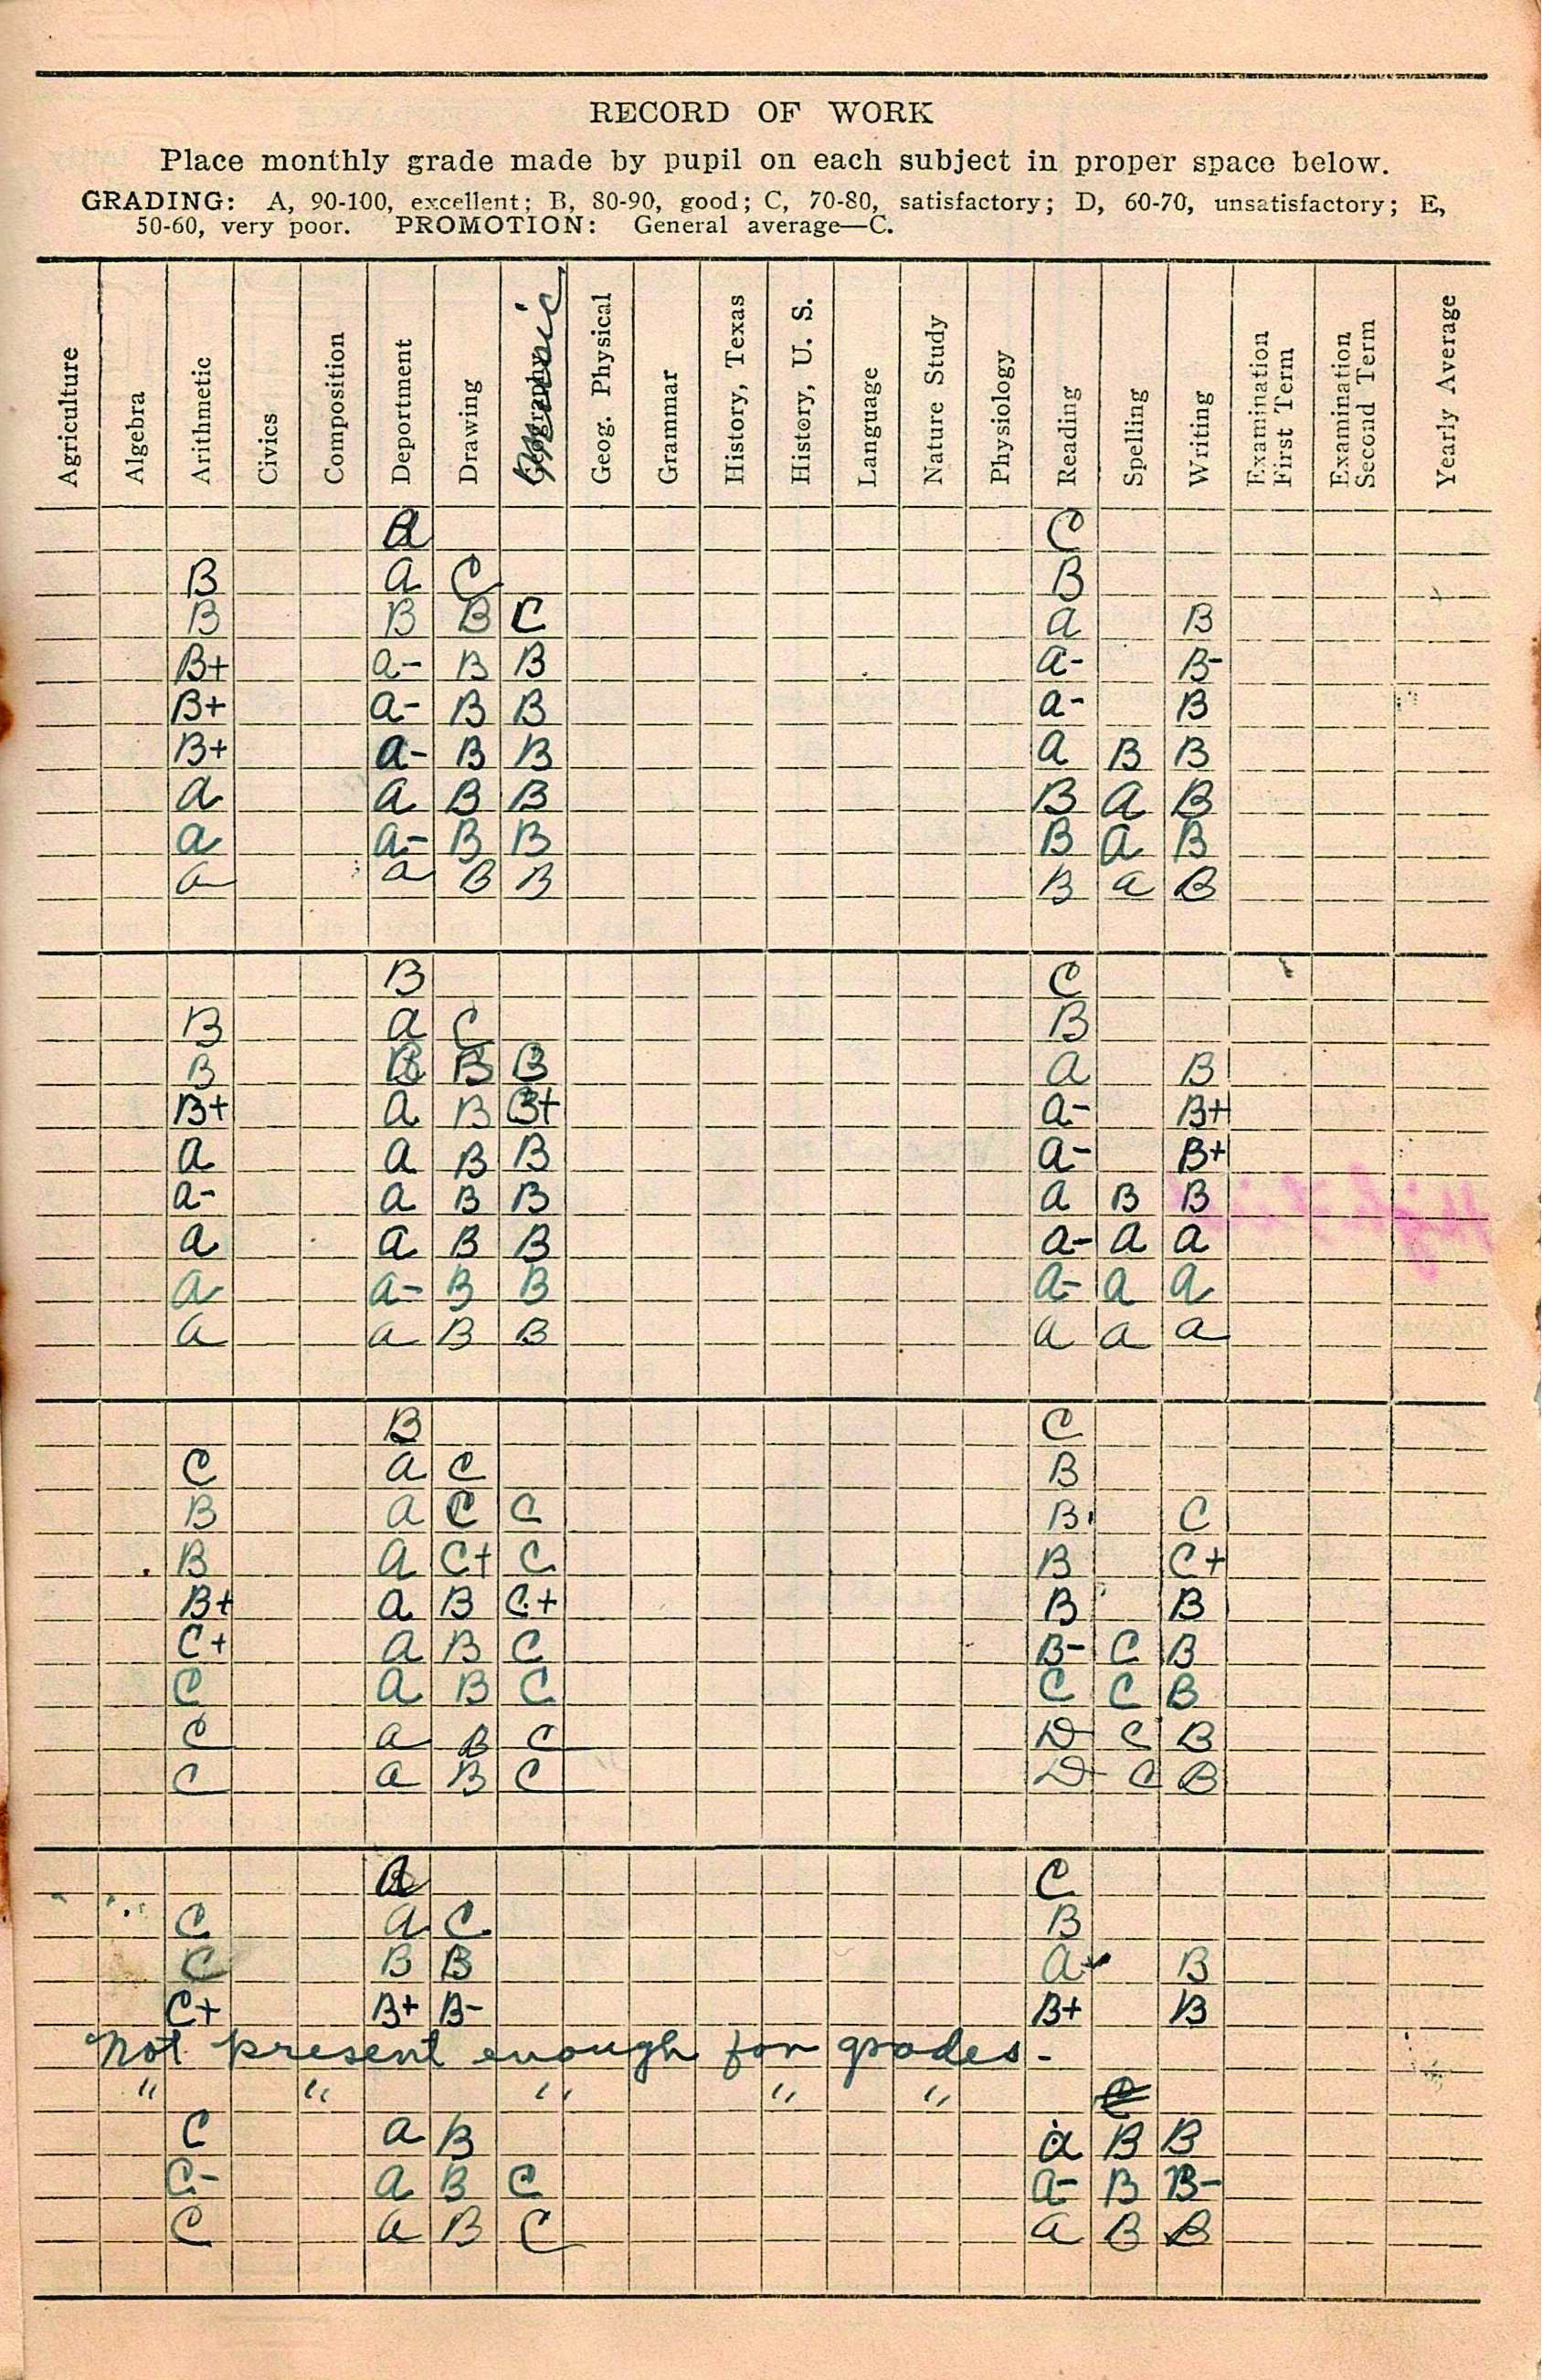 RECORD OF WORK
Place monthly grade made by pupil on each subject in proper space below.
GRADING: A, 90-100, excellent; B, 80-90, good; C, 70-80, satisfactory; D, 60-70, unsatisfactory; E,
50-60, very poor. PROMOTION: General average—C.
Agriculture
Algebra
Arithmetic
Civics
Composition
Deportment
Drawing
Geography Music
Geog. Physical
Grammar
History, Texas
History, U. S.
Language
Nature Study
Physiology
Reading
Spelling
Writing
Examination First Term
Examination Second Term
Yearly Average
A C
B A C B
B B B C A B
B+ A- B B A- B-
B+ A- B B A- B
B+ A- B B A B B
A A B B B A B
A A- B B B A B
A A B B B A B
B C
B A C B
B B B B A B
B+ A B B+ A- B+
A A B B A- B+
A- A B B A B B
A A B B A- A A
A A- B B A- A A
A A B B A A A
B C
C A C B
B A C C B C
B A C+ C B C+
B+ A B C+ B B
C+ A B C B- C B
C A B C C C B
C A B C D C B
C A B C D C B
A C
C A C B
C B B A B
C+ B+ B- B+ B
Not present enough for grades-
" " " " " C
C A B A B B
C- A B C A- B B-
C A B C A B B